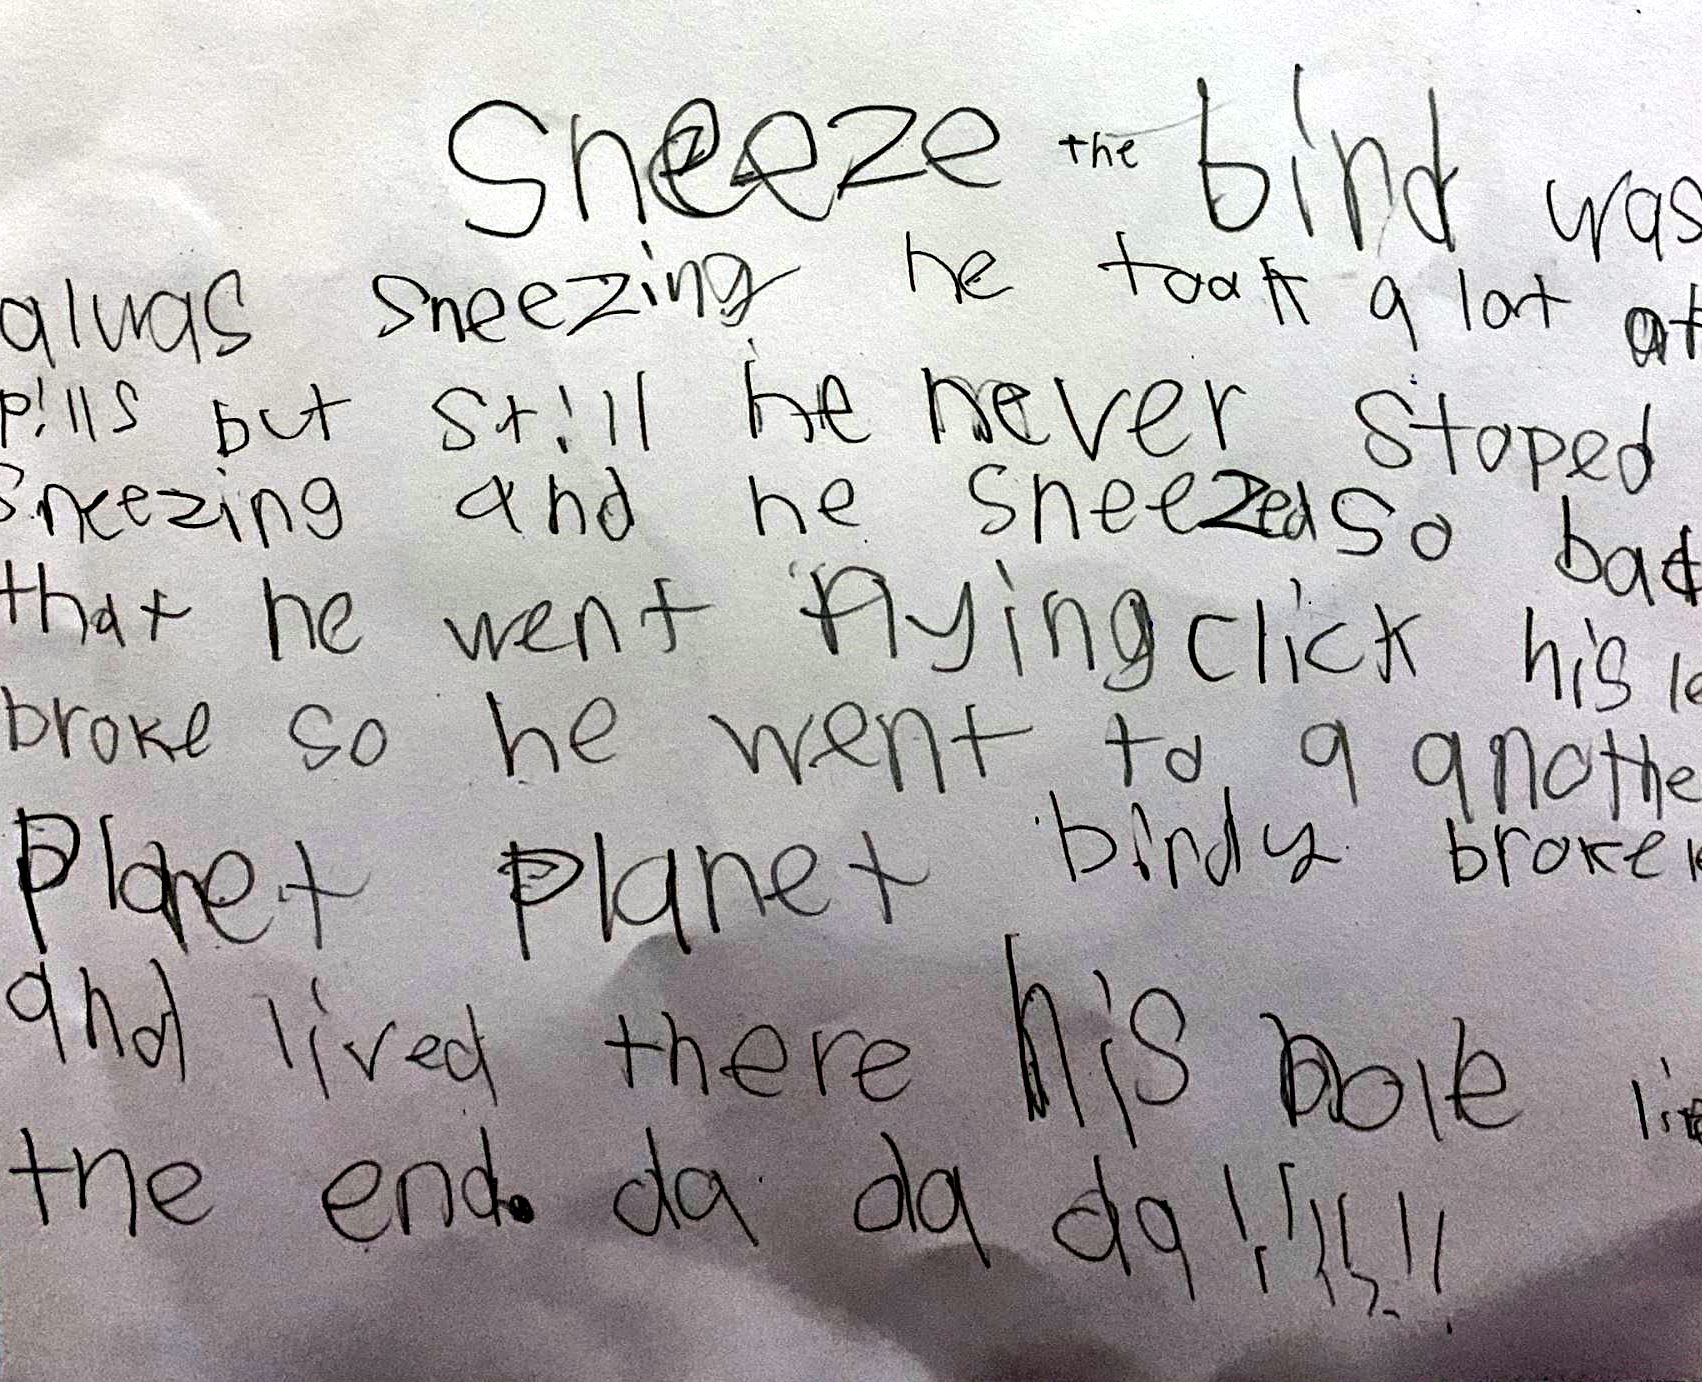 Sneeze the bird was
alwas sneezing he took a lot of
pills but still he never stoped
Sneezing and he sneezed so bad
that he went flying click his
broke so he went to a anothe
Planet planet birdy broke
and lived there his hole
the end. da da da !!!!!!!